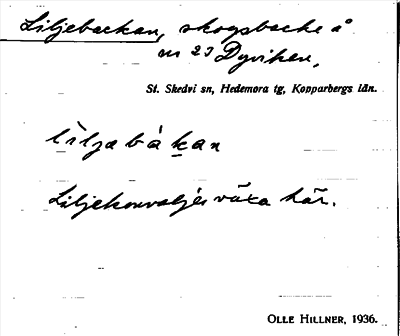 Liljebackan, skogsbacke å
nr 23 Dyviken,
St. Skedvi sn, Hedemora tg, Kopparbergs län.
lìljabàkan
Liljekonvaljer växa här.
OLLE HILLNER, 1936.